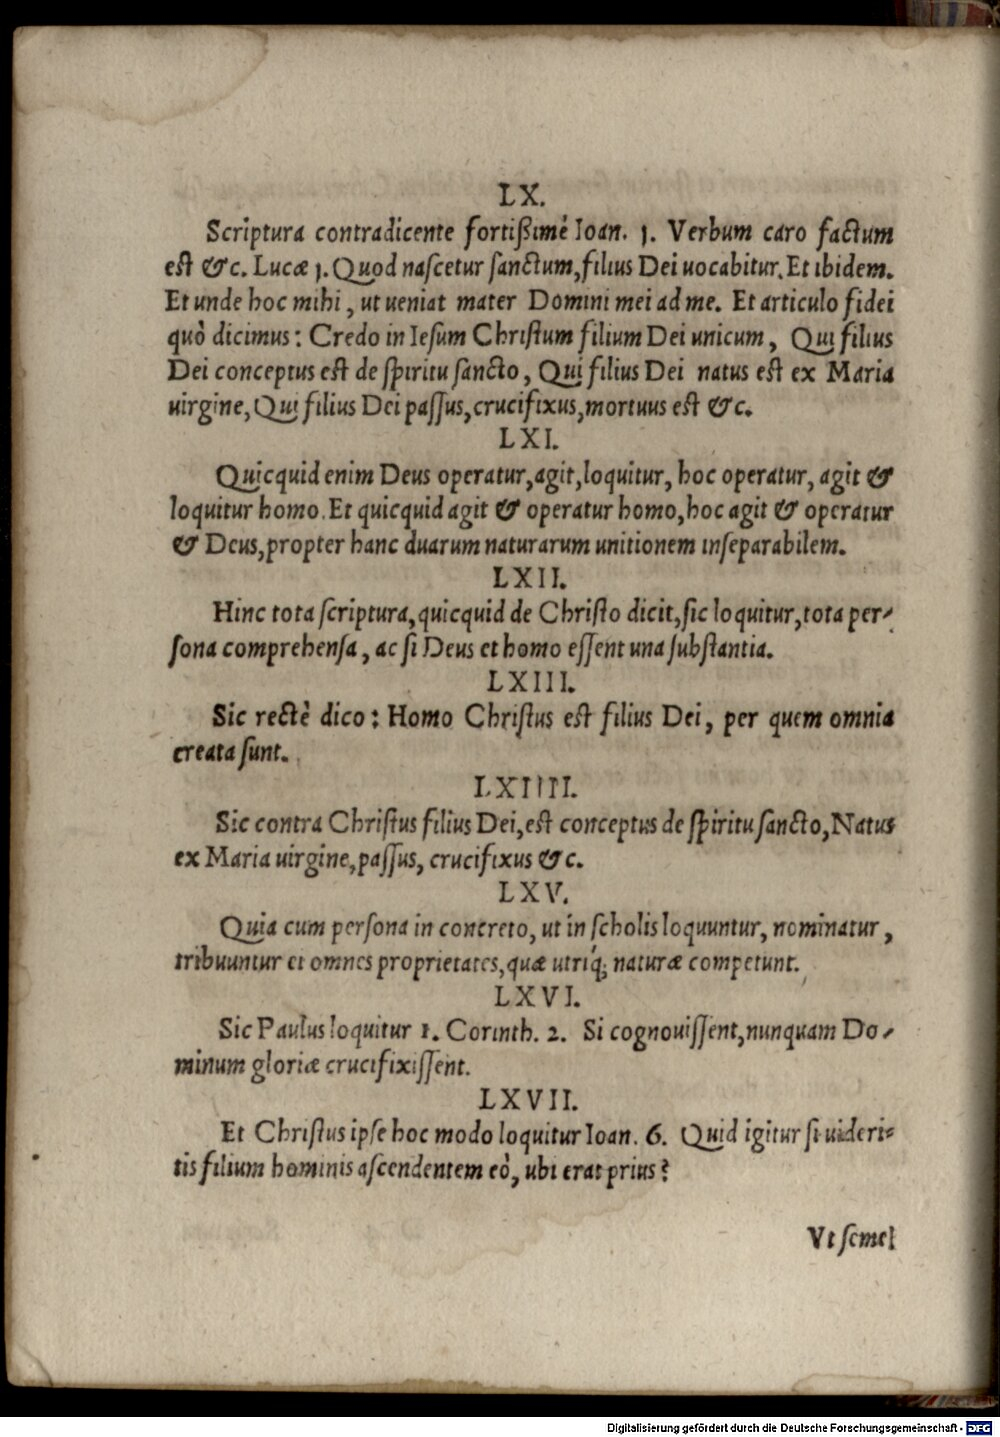 LX.
Scriptura contradicente fortißimè Ioan. 1. Verbum caro factum
est &c. Lucæ 1. Quod naſcetur ſanctum, filius Dei uocabitur. Et ibidem.
Et unde hoc mihi, ut ueniat mater Domini mei ad me. Et articulo fidei
quò dicimus: Credo in Ieſum Chriſtum filium Dei unicum, Qui filius
Dei conceptus est de ſpiritu ſancto, Qui filius Dei natus est ex Maria
uirgine, Qui filius Dei paſſus, crucifixus, mortuus est &c.
LXI.
Quicquid enim Deus operatur, agit, loquitur, hoc operatur, agit &
loquitur homo. Et quicquid agit & operatur homo, hoc agit & operatur
& Deus, propter hanc duarum naturarum unitionem inſeparabilem.
LXII.
Hinc tota ſcriptura, quicquid de Chriſto dicit, ſic loquitur, tota per-
ſona comprehenſa, ac ſi Deus et homo eſſent una ſubſtantia.
LXIII.
Sic rectè dico: Homo Chriſtus est filius Dei, per quem omnia
creata ſunt.
LXIIII.
Sic contra Chriſtus filius Dei, est conceptus de ſpiritu ſancto, Natus
ex Maria uirgine, paſſus, crucifixus &c.
LXV.
Quia cum perſona in concreto, ut in ſcholis loquuntur, nominatur,
tribuuntur et omnes proprietates, quæ utriq́; naturæ competunt.
LXVI.
Sic Paulus loquitur 1. Corinth. 2. Si cognouiſſent, nunquam Do-
minum gloriæ crucifixiſſent.
LXVII.
Et Chriſtus ipſe hoc modo loquitur Ioan. 6. Quid igitur ſi uideri-
tis filium hominis aſcendentem eò, ubi erat prius?
Vt ſemel
Digitalisierung gefördert durch die Deutsche Forschungsgemeinschaft - DFG